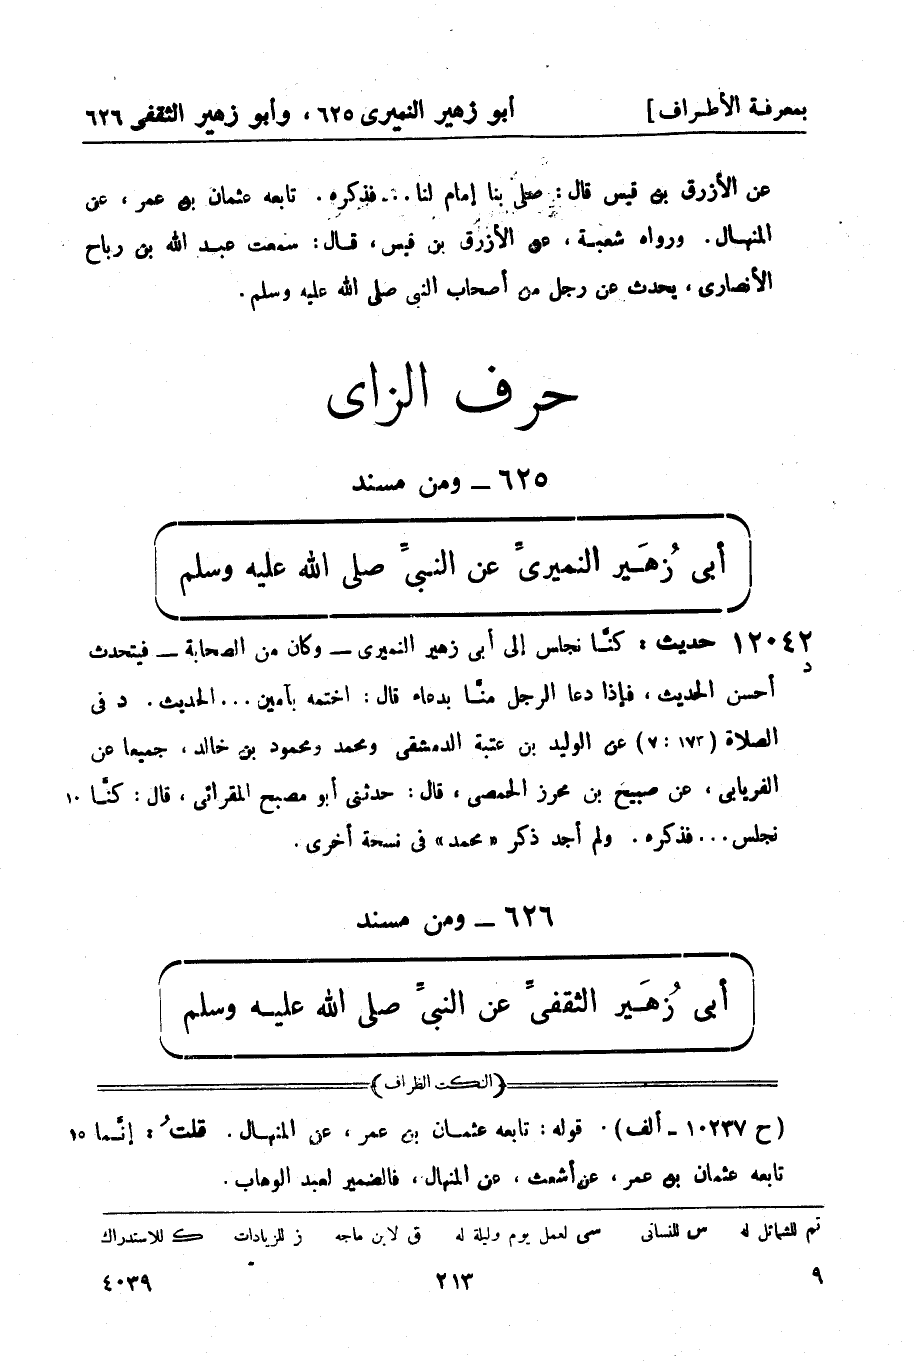 بمعرفة الأطراف] أبو زهير النميرى ٦٢٥ ، وأبو زهير الثقفى ٦٢٦
عن الأزرق بن قيس قال : صلى بنا إمام لنا ... فذكره . تابعه عثمان بن عمر ، عن
المنهال . ورواه شعبة ، عن الأزرق بن قيس ، قال : سمعت عبد الله بن رباح
الأنصارى ، يحدث عن رجل من أصحاب النبى صلى الله عليه وسلم .
حرف الزاى
٦٢٥ ـ ومن مسند
أبى زُهَير النميرىّ عن النبىّ صلى الله عليه وسلم
١٢٠٤٢ حديث : كنَّا نجلس إلى أبى زهير النميرى ــ وكان من الصحابة ــ فيتحدث
د
أحسن الحديث ، فإذا دعا الرجل منَّا بدعاء قال : اختمه بآمين ... الحديث . د فى
الصلاة (١٧٣ : ٧) عن الوليد بن عتبة الدمشقى ومحمد ومحمود بن خالد ، جميعا عن
الفريابى ، عن صبيح بن محرز الحمصى ، قال : حدثنى أبو مصبح المقرائى ، قال : كنَّا ١٠
نجلس ... فذكره . ولم أجد ذكر «محمد» فى نسخة أخرى .
٦٢٦ ـ ومن مسند
أبى زُهَير الثقفىّ عن النبىّ صلى الله عليه وسلم
(النكت الظراف)
(ح ١٠٢٣٧ ـ ألف) . قوله : تابعه عثمان بن عمر ، عن المنهال . قلتُ : إنَّما ١٥
تابعه عثمان بن عمر ، عن أشعث ، عن المنهال ، فالضمير لعبد الوهاب .
تم للشمائل له س للنسائى سى لعمل يوم وليلة له ق لابن ماجه ز للزيادات ك للاستدراك
٩ ٢١٣ ٤٠٣٩